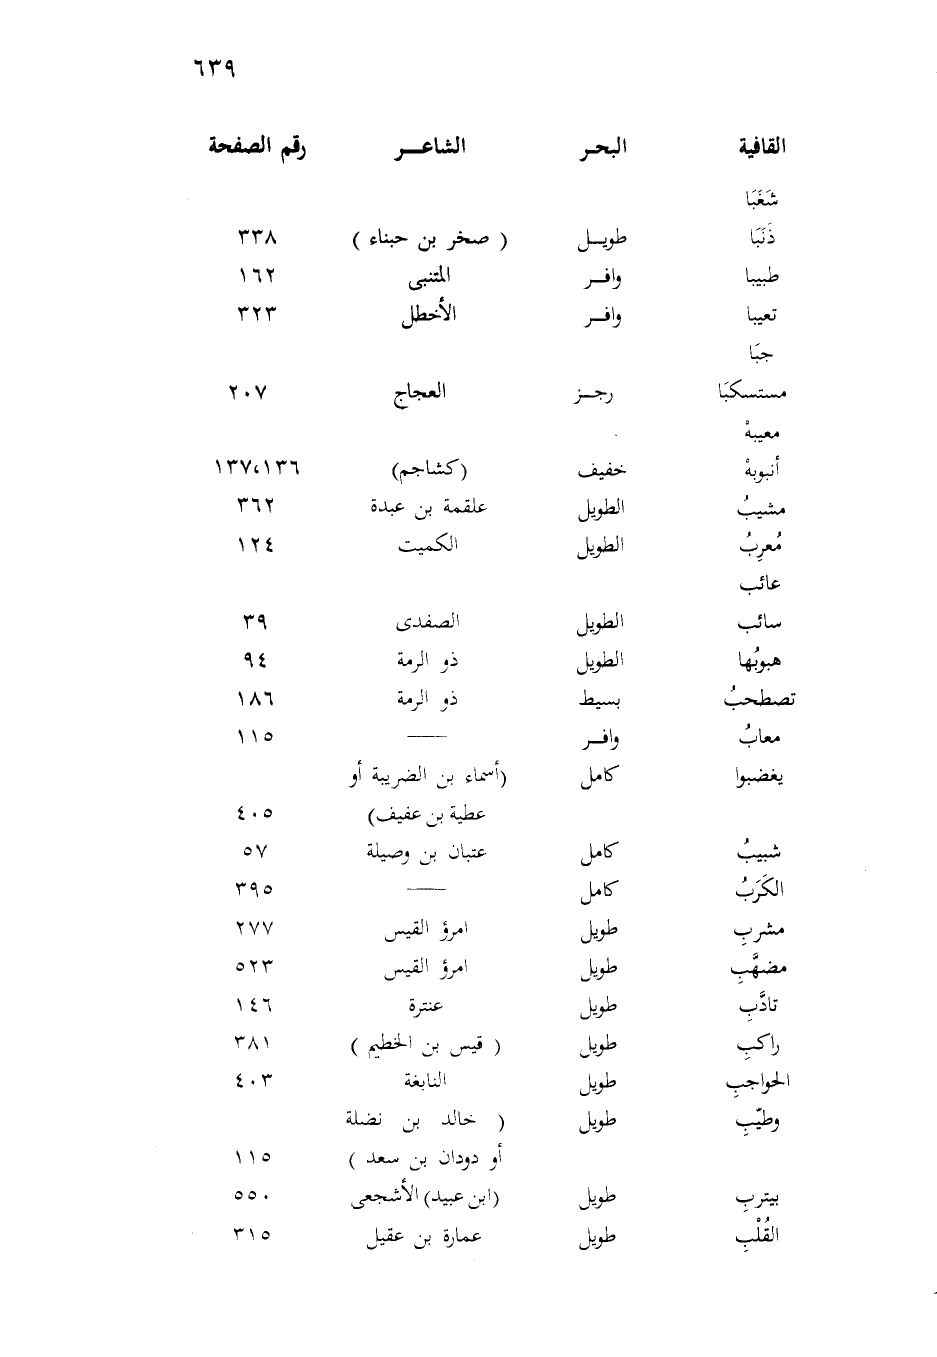 ٦٣٩
القافية البحر الشاعر رقم الصفحة
شَغَبَا
ذَنَبَا طويل ( صخر بن حبناء ) ٣٣٨
طبيبا وافر المتنبى ١٦٢
تعيبا وافر الأخطل ٣٢٣
جبَا
مستسكبَا رجز العجاج ٢٠٧
معيبهْ
أنبوبهْ خفيف (كشاجم) ١٣٧،١٣٦
مشيبُ الطويل علقمة بن عبدة ٣٦٢
مُعربُ الطويل الكميت ١٢٤
عائب
سائب الطويل الصفدى ٣٩
هبوبُها الطويل ذو الرمة ٩٤
تصطحبُ بسيط ذو الرمة ١٨٦
معابُ وافر —— ١١٥
يغضبوا كامل (أسماء بن الضريبة أو
عطية بن عفيف) ٤٠٥
شبيبُ كامل عتبان بن وصيلة ٥٧
الكَرَبُ كامل —— ٣٩٥
مشربِ طويل امرؤ القيس ٢٧٧
مضهَّبِ طويل امرؤ القيس ٥٢٣
تأدَّبِ طويل عنترة ١٤٦
راكبِ طويل ( قيس بن الخطيم ) ٣٨١
الحواجبِ طويل النابغة ٤٠٣
وطيّبِ طويل ( خالد بن نضلة
أو دودان بن سعد ) ١١٥
بيتربِ طويل (ابن عبيد) الأشجعى ٥٥٠
القُلْبِ طويل عمارة بن عقيل ٣١٥